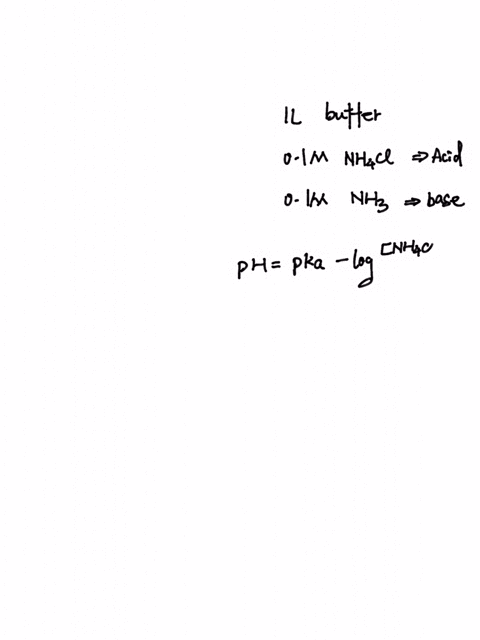 1L buffer
0.1M NH4Cl ⇒ Acid
0.1M NH3 ⇒ base
pH = pka - log [NH4C